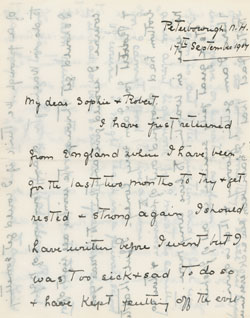 Peterborough N.H.
17th September 1964
My dear Sophie & Robert
I have just returned
from England where I have been
for the last two months to try & get
rested & strong again. I should
have written before I went but I
was too sick & sad to do so
& have kept putting off the evil